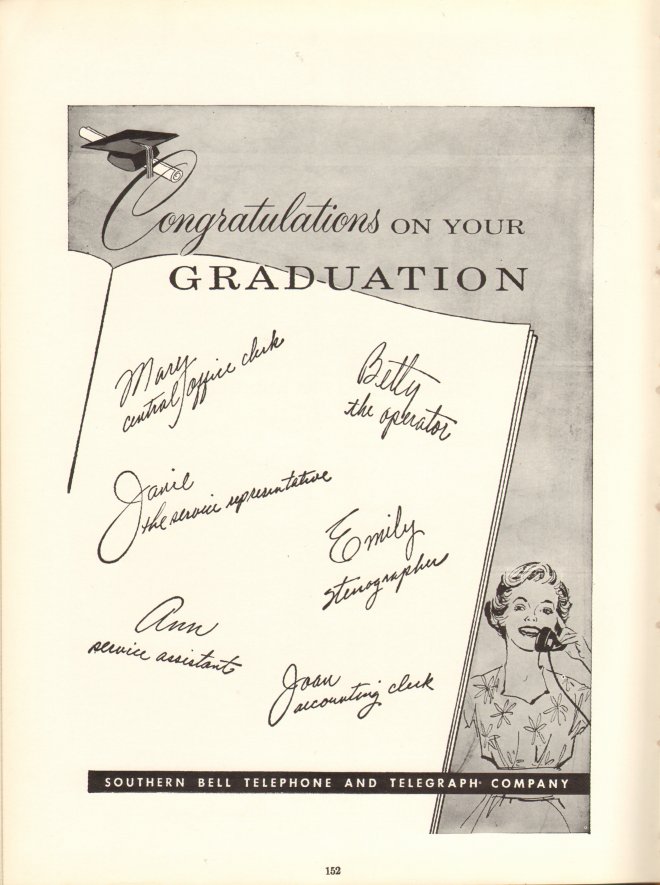 Congratulations ON YOUR
GRADUATION
Mary
central office clerk
Betty
the operator
Janie
the service representative
Emily
stenographer
Ann
service assistant
Joan
accounting clerk
SOUTHERN BELL TELEPHONE AND TELEGRAPH COMPANY
152